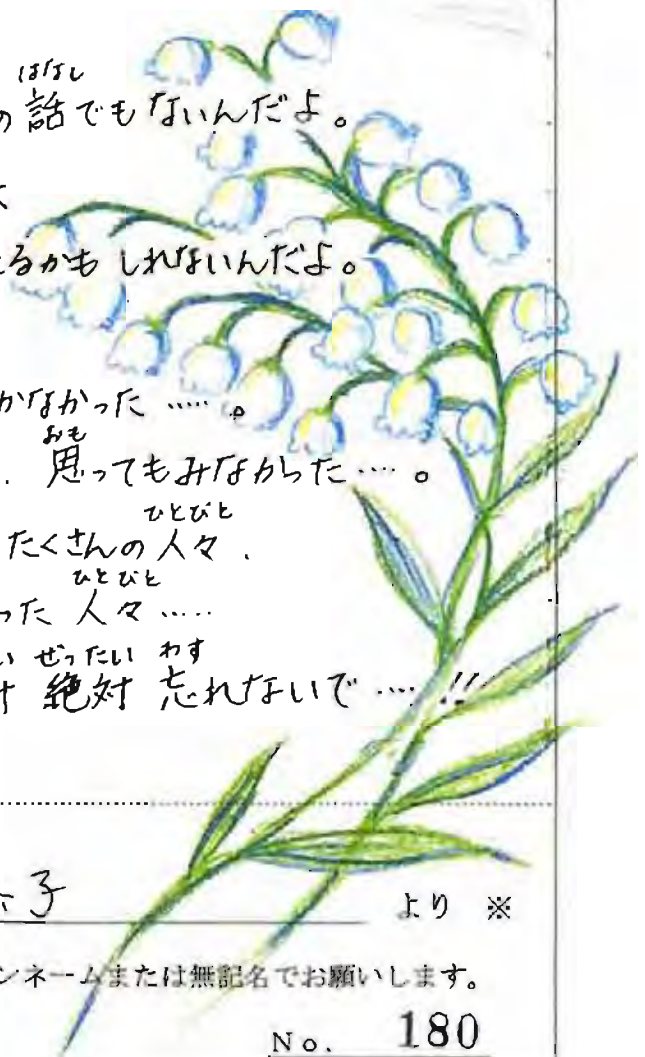 はなし
の話でもないんだよ。
るかもしれないんだよ。
かなかった ……。
おも
. 思ってもみなかった …. 。
ひとびと
たくさんの人々 .
ひとびと
った 人々 …..
い ぜったい わす
絶対 忘れないで ….!!
子 より ※
ンネームまたは無記名でお願いします。
No. 180